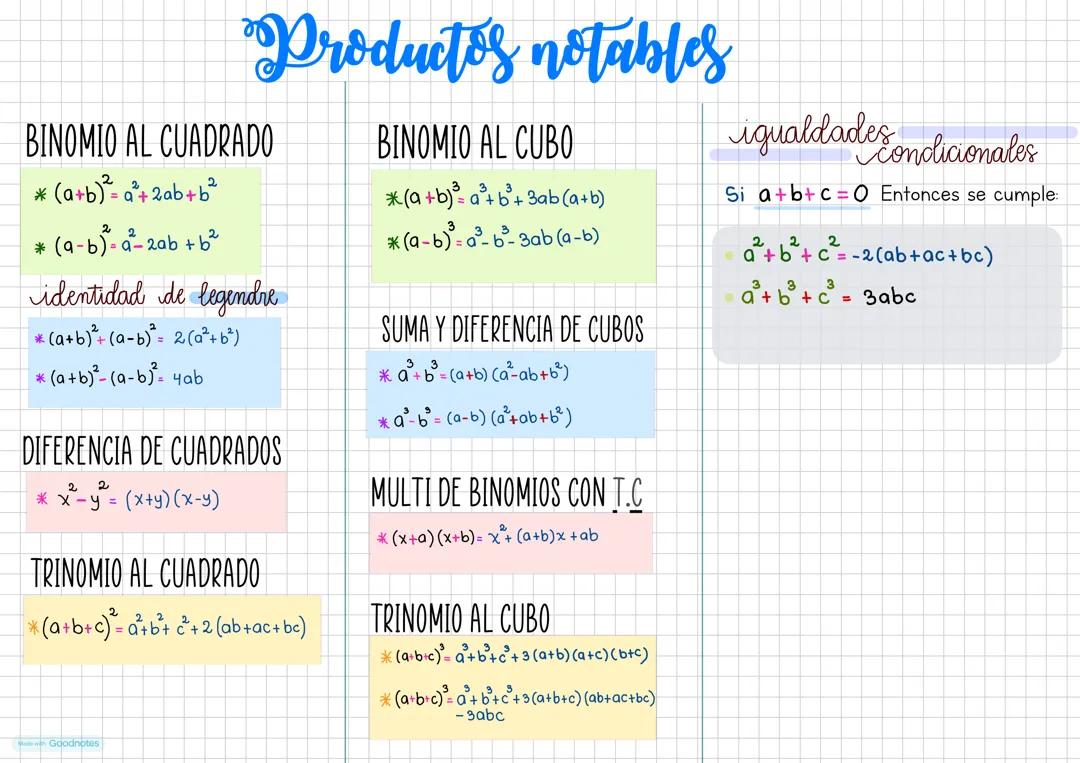 Productos notables
BINOMIO AL CUADRADO
* (a+b)² = a²+2ab+b²
* (a-b)² = a²-2ab+b²
identidad de legendre
* (a+b)²+(a-b)² = 2(a²+b²)
* (a+b)²-(a-b)² = 4ab
DIFERENCIA DE CUADRADOS
* x²-y² = (x+y)(x-y)
TRINOMIO AL CUADRADO
* (a+b+c)² = a²+b²+c²+2(ab+ac+bc)
BINOMIO AL CUBO
* (a+b)³ = a³+b³+3ab(a+b)
* (a-b)³ = a³-b³-3ab(a-b)
SUMA Y DIFERENCIA DE CUBOS
* a³+b³ = (a+b)(a²-ab+b²)
* a³-b³ = (a-b)(a²+ab+b²)
MULTI DE BINOMIOS CON T.C
* (x+a)(x+b) = x²+(a+b)x+ab
TRINOMIO AL CUBO
* (a+b+c)³ = a³+b³+c³+3(a+b)(a+c)(b+c)
* (a+b+c)³ = a³+b³+c³+3(a+b+c)(ab+ac+bc)
-3abc
igualdades
condicionales
Si a+b+c=0 Entonces se cumple:
a²+b²+c² = -2(ab+ac+bc)
a³+b³+c³ = 3abc
Made with Goodnotes